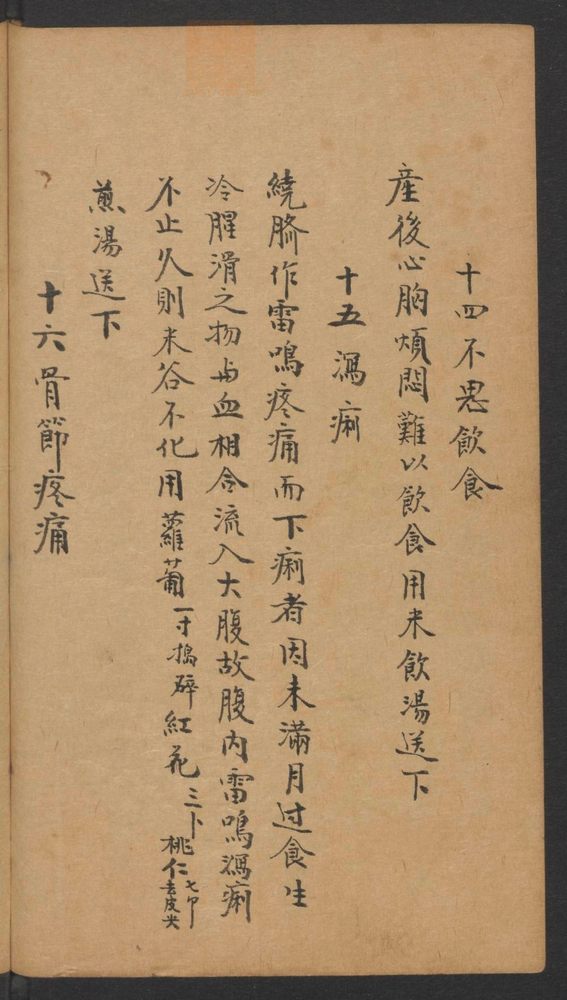 十四不思飲食
産後心胸煩悶難以飲食用米飲湯送下
十五瀉痢
繞臍作雷鳴疼痛而下痢者因未滿月过食生
冷腥滑之物与血相合流入大腹故腹内雷鳴瀉痢
不止久則米谷不化用蘿蔔一寸搗碎紅花三卜桃仁七卩去皮尖
煎湯送下
十六骨節疼痛